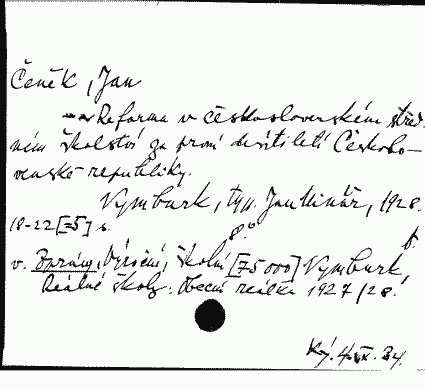 Čeněk, Jan
Reforma v československém střed-
ním školství za první desítiletí Českoslo-
venské republiky.
Nymburk, typ. Jan Minář, 1928.
18-22 [=5] s. 8.°
v. Zprávy, Výroční, školní [75000] Nymburk,
Reálné školy. Obecní reálka 1927/28.
Ký. 4. 34.